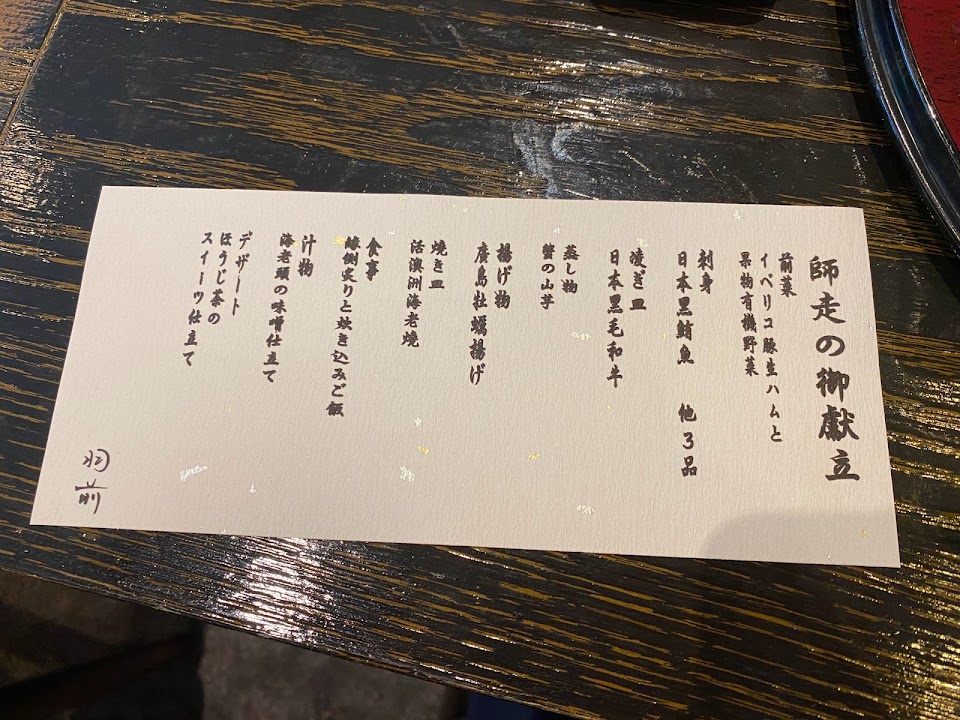 師走の御献立
前菜
イベリコ豚生ハムと
果物有機野菜
刺身
日本黒鮪魚　他３品
凌ぎ皿
日本黒毛和牛
蒸し物
蟹の山芋
揚げ物
廣島牡蠣揚げ
焼き皿
活澳洲海老焼
食事
縁側炙りと炊き込みご飯
汁物
海老頭の味噌仕立て
デザート
ほうじ茶の
スイーツ仕立て
羽前